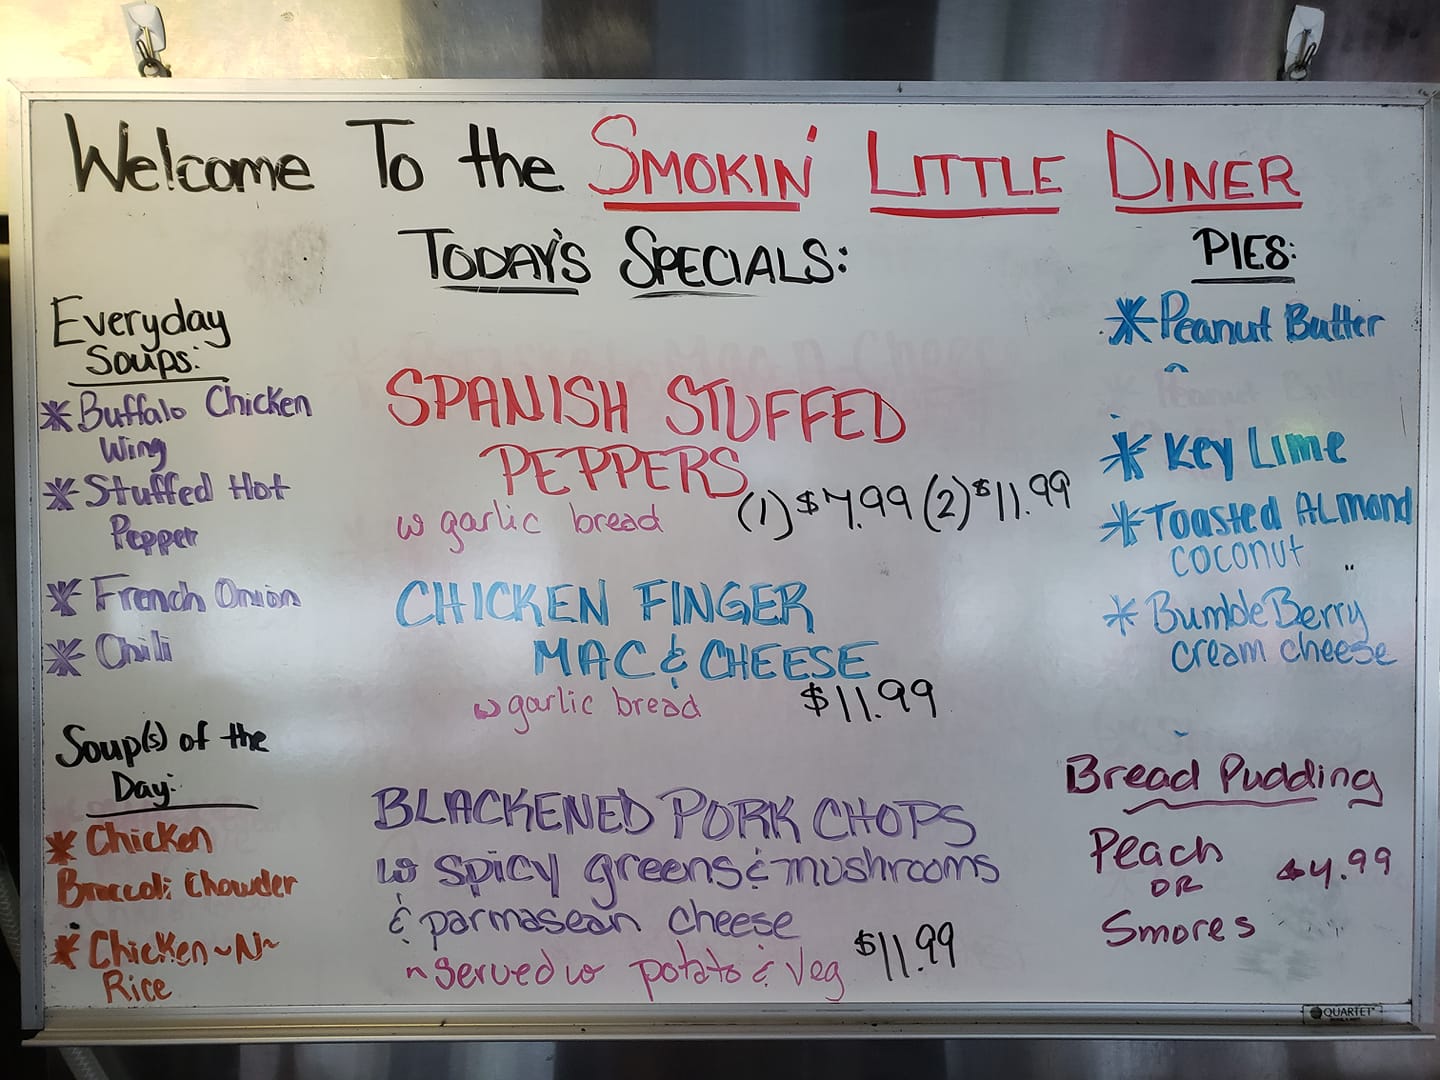 Welcome To the SMOKIN' LITTLE DINER
TODAY'S SPECIALS:
Everyday
Soups:
* Buffalo Chicken
Wing
* Stuffed Hot
Pepper
* French Onion
* Chili
Soup(s) of the
Day:
* Chicken
Broccoli Chowder
* Chicken~N~
Rice
SPANISH STUFFED
PEPPERS
w garlic bread (1) $7.99 (2) $11.99
CHICKEN FINGER
MAC & CHEESE
w garlic bread $11.99
BLACKENED PORK CHOPS
w spicy greens & mushrooms
& parmasean cheese
~ served w potato & veg $11.99
PIES:
* Peanut Butter
* Key Lime
* Toasted ALmond
coconut
* BumbleBerry
cream cheese
Bread Pudding
Peach
OR $4.99
Smores
QUARTET